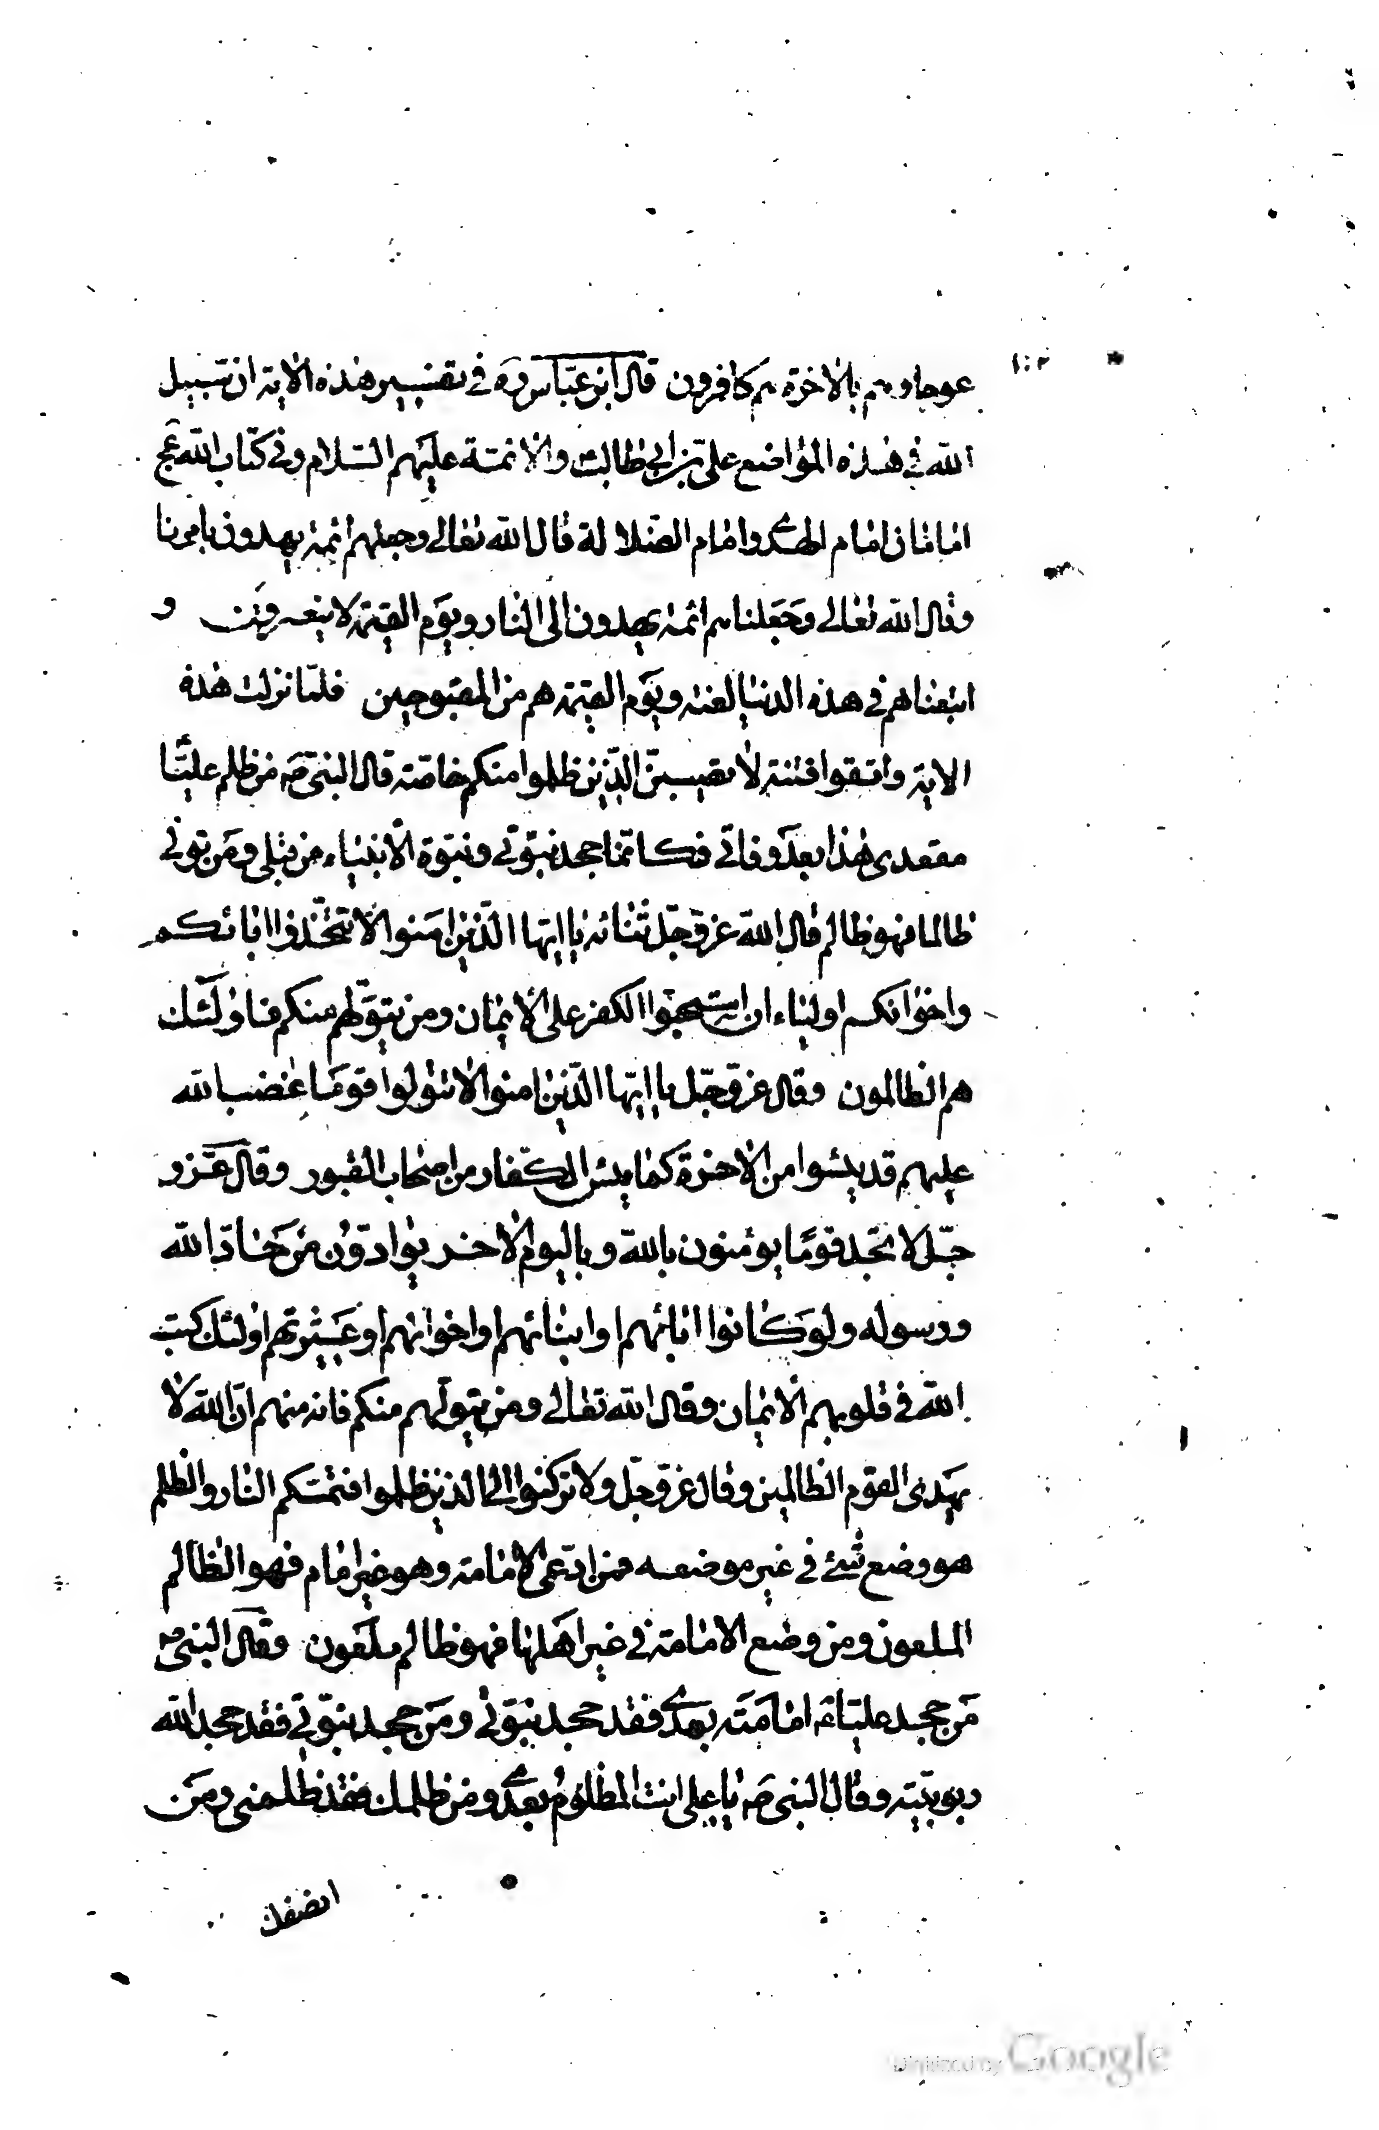 ١٠٣
عوجا وهم بالاخرة هم كافرون قال ابن عباس ره في تفسير هذه الاية ان سبيل
الله في هذه المواضع علي بن ابي طالب والائمة عليهم السلام وفي كتاب الله عج
امامان امام الهدى وامام الضلالة قال الله تعالى وجعلنهم ائمة يهدون بامرنا
وقال الله تعالى وجعلناهم ائمة يهدون الى النار ويوم القيمة لا ينصرون و
اتبعناهم في هذه الدنيا لعنة ويوم القيمة هم من المقبوحين فلما نزلت هذه
الاية واتقوا فتنة لا تصيبن الذين ظلموا منكم خاصة قال النبي صه من ظلم عليّا
مقعدى هذا بعد وفاتي فكانما جحد نبوتي ونبوة الانبياء من قبلي ومن تولى
ظالما فهو ظالم قال الله عز وجل ثنائه يا ايها الذين امنوا لا تتخذوا ابائكم
واخوانكم اولياء ان استحبوا الكفر على الايمان ومن يتولهم منكم فاولئك
هم الظالمون وقال عز وجل يا ايها الذين امنوا لا تتولوا قوما غضب الله
عليهم قد يئسوا من الاخرة كما يئس الكفار من اصحاب القبور وقال عز و
جل لا تجد قوما يؤمنون بالله وباليوم الاخر يوادون من حاد الله
ورسوله ولو كانوا ابائهم او ابنائهم او اخوانهم او عشيرتهم اولئك كتب
الله في قلوبهم الايمان وقال الله تعالى ومن يتولهم منكم فانه منهم ان الله لا
يهدى القوم الظالمين وقال عز وجل ولا تركنوا الى الذين ظلموا فتمسكم النار والظلم
هو وضع شئ في غير موضعه فمن ادعى الامامة وهو غير امام فهو الظالم
الملعون ومن وضع الامامة في غير اهلها فهو ظالم ملعون وقال النبي صه
من جحد عليا عه امامته بعدى فقد جحد نبوتي ومن جحد نبوتي فقد جحد الله
ربوبيته وقال النبي صه يا علي انت المظلوم بعدى ومن ظلمك فقد ظلمني ومن
انصفك
Digitized by Google